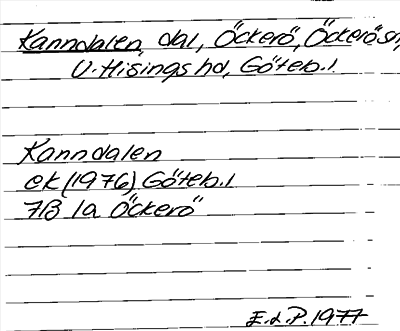 Kanndalen, dal, Öckerö, Öckerö sn,
V. Hisings hd, Göteb. l
Kanndalen
ek (1976) Göteb. l
7B 1a Öckerö
E.d.P. 1977